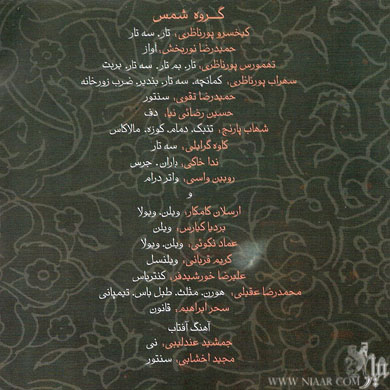 گروه شمس
کیخسرو پورناظری، تار. سه تار
حمیدرضا نوربخش، آواز
تهمورس پورناظری، تار. بم تار. سه تار. بربت
سهراب پورناظری، کمانچه. سه تار. بندیر. ضرب زورخانه
حمیدرضا تقوی، سنتور
حسین رضائی نیا، دف
شهاب پارنج، تنبک. دمام. کوزه. مالاکاس
کاوه گرایلی، سه تار
ندا خاکی، باران. جرس
روبین واسی، واتر درام
و
ارسلان کامکار، ویلن. ویولا
بردیا کیارس، ویلن
عماد نکوئی، ویلن. ویولا
کریم قربانی، ویلنسل
علیرضا خورشیدفر، کنترباس
محمدرضا عقیلی، هورن. مثلث. طبل باس. تیمپانی
سحر ابراهیم، قانون
آهنگ آفتاب
جمشید عندلیبی، نی
مجید اخشابی، سنتور
WWW.NIAAR.COM